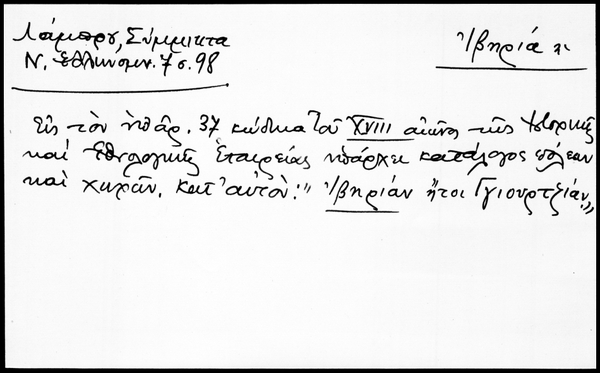 Λάμπρου, Σύμμικτα
Ν. Ἑλληνομν. 7 σ. 98
Ἰβηρία
Εἰς τὸν ὑπἀρ. 37 κώδικα τοῦ XVIII αἰῶνος τῆς Ἱστορικῆς
καὶ Ἐθνολογικῆς Ἑταιρείας ὑπάρχει κατάλογος πόλεων
καὶ χωρῶν. κατ' αὐτὸν: "Ἰβηρίαν ἤτοι Γγιουρτζιάν."